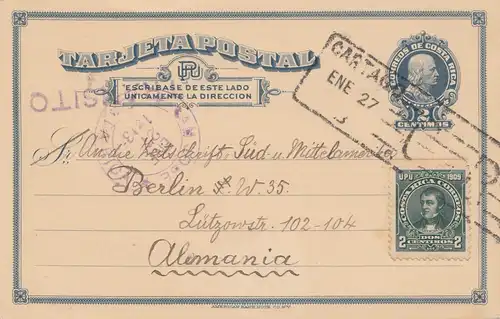 TARJETA POSTAL
UPR
ESCRIBASE DE ESTE LADO
UNICAMENTE LA DIRECCION
CORREOS DE COSTA RICA
2
CENTIMOS
CARTAGO
ENE 27
SITO
Sr. An die Zeitschrift, Süd- u. Mittelamerika
Berlin W. 35.
Lützowstr. 102-104
Alemania
UPU 1909
COSTA RICA CORREOS
2 DOS CENTIMOS 2